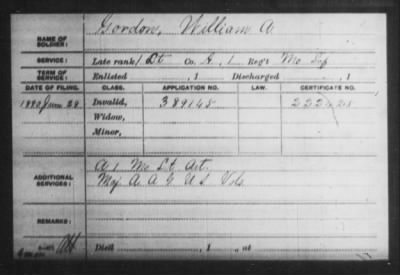 NAME OF SOLDIER: Gordon, William A.
SERVICE: Late rank 1 Lt Co. A, 1 Reg't Mo
TERM OF SERVICE: Enlisted , 1 Discharged , 1
DATE OF FILING. CLASS. APPLICATION NO. LAW. CERTIFICATE NO.
1880 June 28 Invalid, 389148
Widow,
Minor,
A 1 Mo Lt Art.
ADDITIONAL SERVICES: Maj. A. A. G. U S Vols
REMARKS:
Died , 1 , at